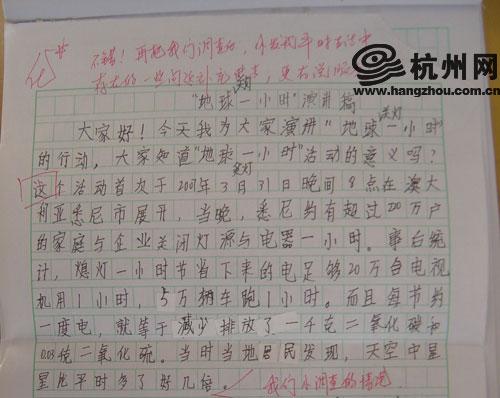 优#
不错！再把我们调查的，你发现平时生活中
存在的一些问题到
杭州网
www.hangzhou.com.cn
熄灯
"地球一小时"演讲稿
熄灯
大家好！今天我为大家演讲"地球一小时"
的行动，大家知道"地球一小时"活动的意义吗？
熄灯
这个活动首次于2007年3月31日晚间8点在澳大
利亚悉尼市展开，当晚，悉尼约有超过220万户
的家庭与企业关闭灯源与电器一小时。事台统
计，熄灯一小时节省下来的电足够20万台电视
机用1小时，5万辆车跑1小时。而且每节约
一度电，就等于减少排放了一千克二氧化碳和
0.03千克二氧化硫。当时当地居民发现，天空中星
星比平时多了好几倍。
我们小调查的情况